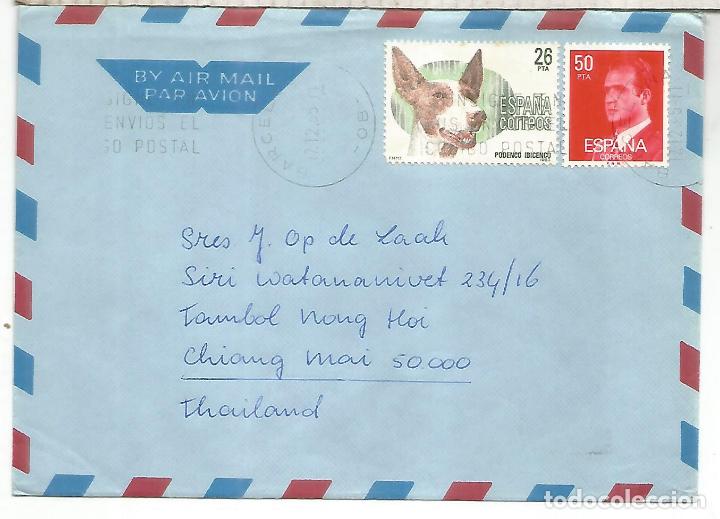 BY AIR MAIL
PAR AVION
ENVIOS EL
POSTAL
26
PTA
ESPAÑA
correos
PODENCO IBICENCO
50
PTA
ESPAÑA
CORREOS
Sres J. Op de Laak
Siri Watananivet 234/16
Tambol Nong Hoi
Chiang Mai 50.000
Thailand
todocoleccion.net